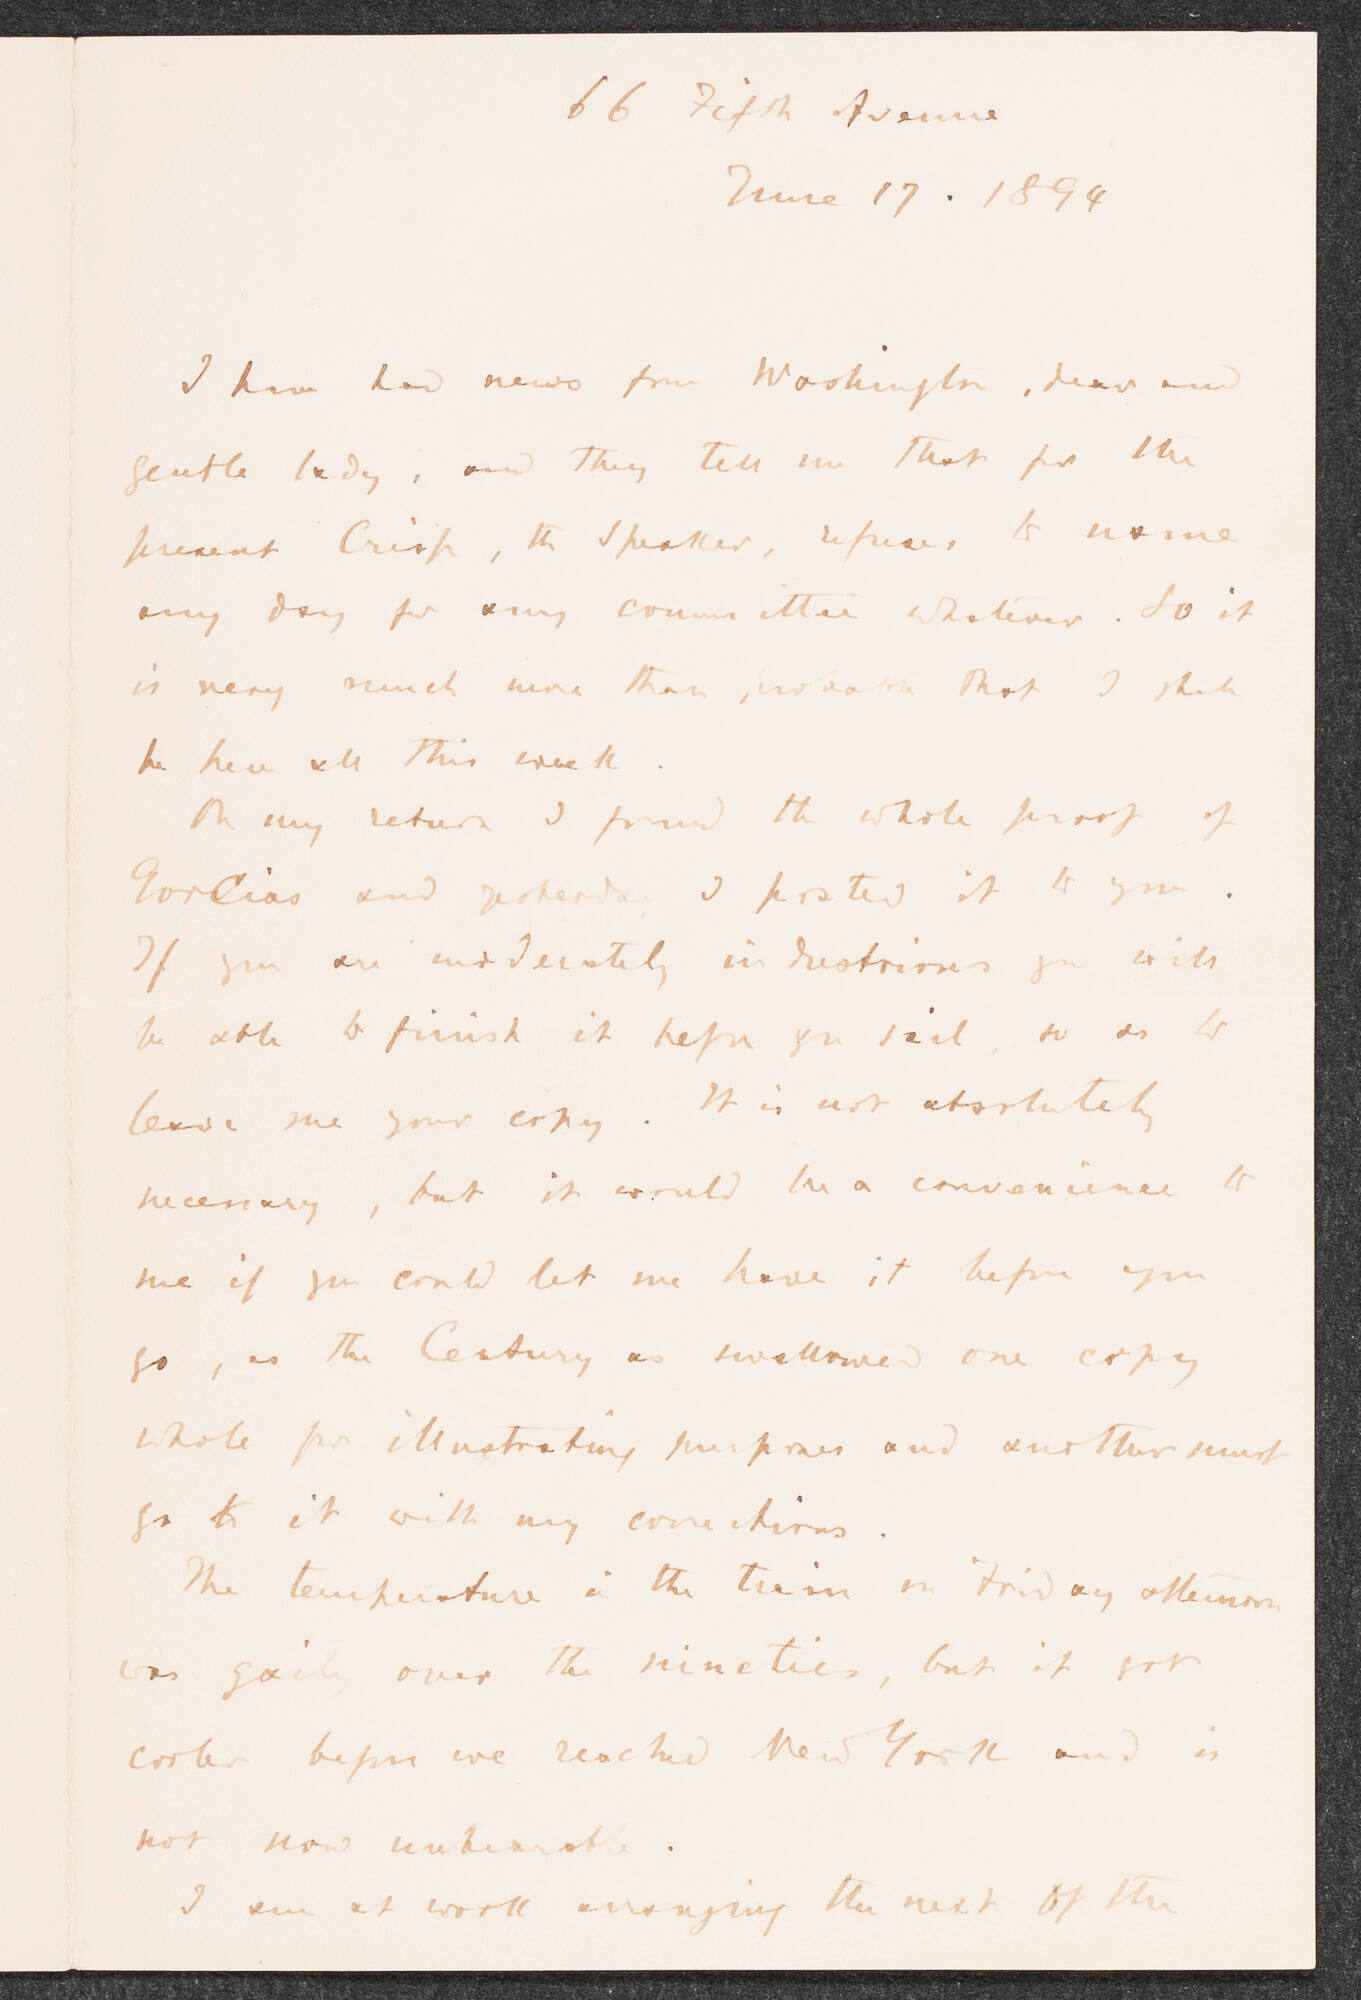 66 Fifth Avenue
June 17. 1894
I have had news from Washington, dear and
gentle lady, and they tell me that for the
present Crisp, the Speaker, refuses to name
any day for any committee whatever. So it
is very much more than probable that I shall
be here all this week.
On my return I found the whole proof of
and yesterday I posted it to you.
If you are moderately industrious you will
be able to finish it before you sail, so as to
leave me your copy. It is not absolutely
necessary, but it would be a convenience to
me if you could let me have it before you
go, as the Century as swallowed one copy
whole for illustrating purposes and another must
go to it with my corrections.
The temperature in the train on Friday afternoon
was gaily over the nineties, but it got
cooler before we reached New York and is
not now unbearable.
I am at work arranging the next of the